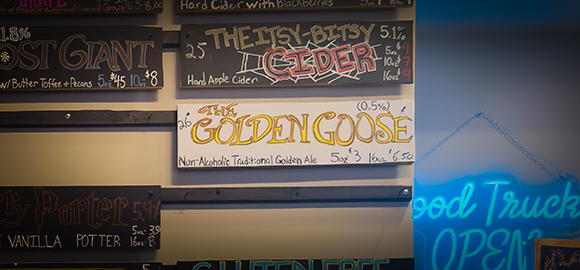 Hard Cider with Blackberries
1.8%
OST GIANT
w/ Butter Toffee + Pecans 5oz $45 10oz $8
25
THE ITSY-BITSY 5.1%
CIDER
Hard Apple Cider
5oz
10oz
16oz
26
THE (0.5%)
GOLDEN GOOSE
Non-Alcoholic Traditional Golden Ale 5oz $3 16oz $6.50
Porter
VANILLA POTTER
16oz
GLUTEN FREE
ood Truck
OPEN